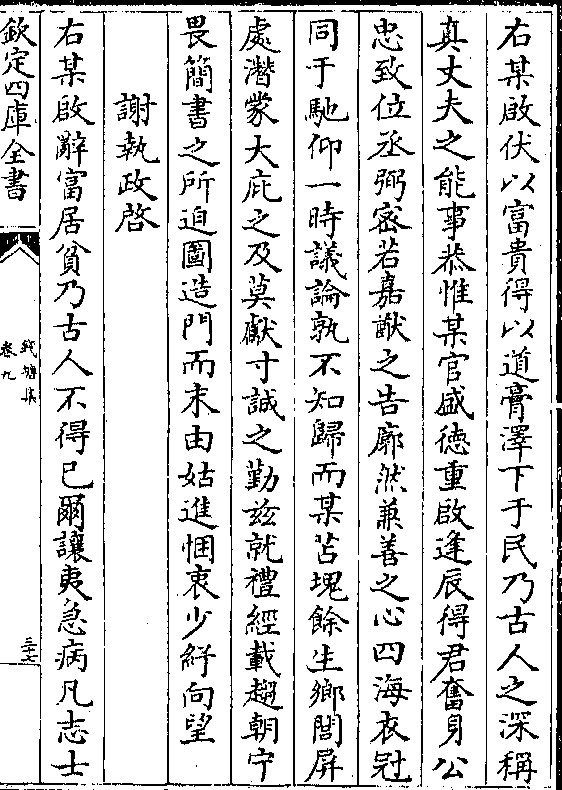 右某啟伏以富貴得以道膏澤下于民乃古人之深稱
真丈夫之能事恭惟某官盛徳重啟逢辰得君奮身公
忠致位丞弼宻若嘉猷之告廓然兼善之心四海衣冠
同于馳仰一時議論孰不知歸而某苫塊餘生鄉閭屏
處潛蒙大庇之及莫獻寸誠之勤兹就禮經載趨朝宁
畏簡書之所迫圖造門而末由姑進悃衷少紓向望
謝執政啓
右某啟辭富居貧乃古人不得已爾讓夷急病凡志士
欽定四庫全書
錢塘集
卷九
三十七